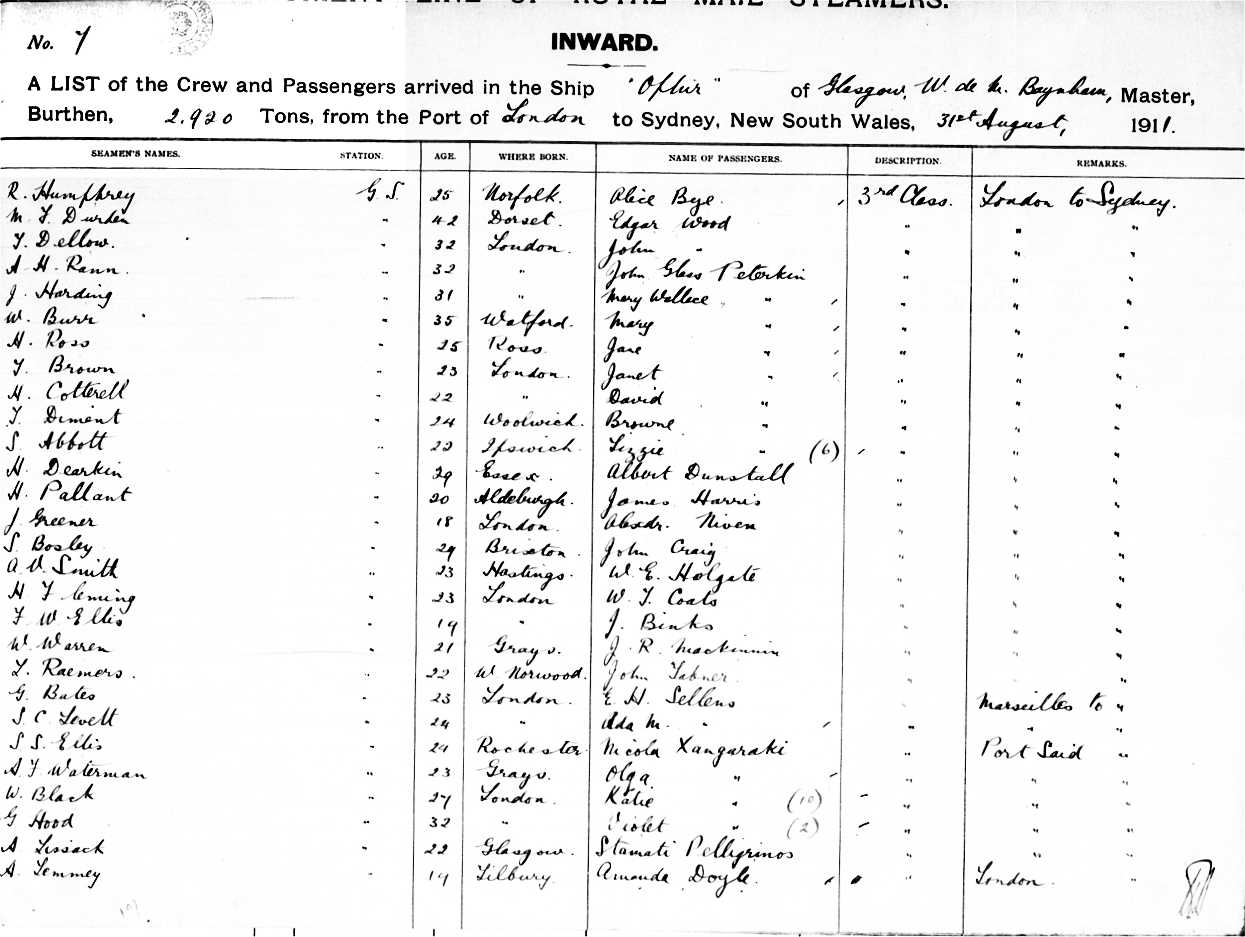 ORIENT LINE OF ROYAL MAIL STEAMERS.
No. 7
INWARD.
A LIST of the Crew and Passengers arrived in the Ship "Ophir" of Glasgow, W. de M. Baynham, Master,
Burthen, 2.920 Tons, from the Port of London to Sydney, New South Wales, 31st August, 1911.
SEAMEN'S NAMES. STATION. AGE. WHERE BORN. NAME OF PASSENGERS. DESCRIPTION. REMARKS.
R. Humphrey G S. 25 Norfolk. Alice Bye. 3rd Class. London to Sydney.
M. F. Durden " 42 Dorset. Edgar Wood " " "
F. Dellow. " 32 London. John " " " "
A H. Rann. " 32 " John Glass Peterkin " " "
J. Harding " 31 " Mary Wallace " " " "
W. Burr " 35 Watford. Mary " " " "
H. Ross " 25 Ross Jane " " " "
F. Brown " 23 London. Janet " " " "
H. Cotterell " 22 " David " " " "
F. Diment " 24 Woolwich. Browne " " " "
S. Abbott " 22 Ipswich. Lizzie " (6) " " "
H. Dearkin " 29 Essex. Albert Dunstall " " "
H. Pallant " 20 Aldeburgh. James Harris " " "
J. Greener " 18 London. Alexdr. Niven " " "
S. Bosley " 29 Brixton. John Craig " " "
A. V. Smith " 23 Hastings. W. E. Holgate " " "
H Fleming " 23 London W. T. Coats " " "
F W Ellis " 19 " J. Binks " " "
W. Warren " 21 Grays. J. R. Mackinnin " " "
L. Raemers. " 22 W Norwood. John Tabner " " "
G. Bates " 23 London. E. H. Sellens " Marseilles to "
S. C. Levett " 24 " Ada M. " " " "
S S. Ellis " 21 Rochester Nicola Xangaraki " Port Said "
A F Waterman " 23 Grays. Olga " " " "
W. Black " 27 London. Katie " (10) " " "
G Hood " 32 " Violet " (2) " " "
A Lissack " 22 Glasgow. Stamati Pelligrinos " " "
A. Lemmey " 19 Tilbury. Amanda Doyle. " London. "